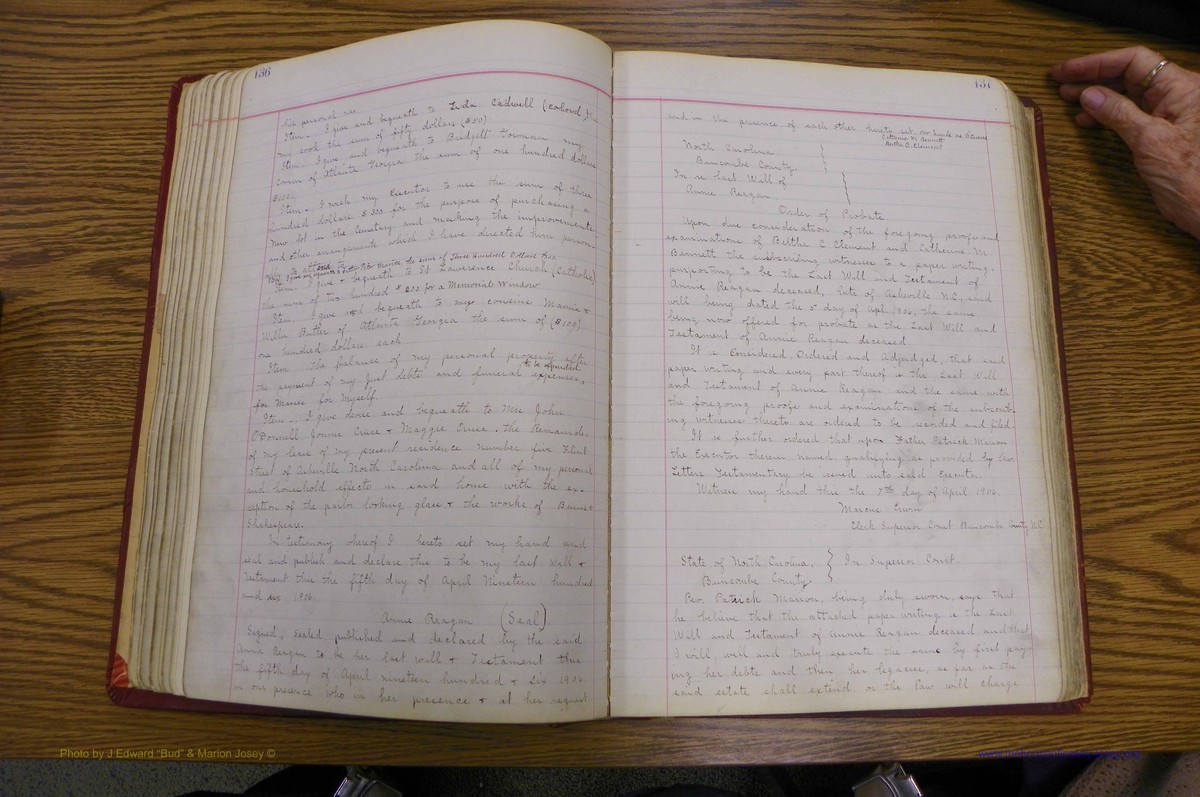 136
his personal use.
Item - I give and bequeath to Leda Cadwell (colored)
my cook the sum of fifty dollars ($50)
Item - I give and bequeath to Bridgett Gorman my
cousin of Atlanta Georgia the sum of one hundred dollars
$100.
Item - I wish my Executor to use the sum of three
hundred dollars $300 for the purpose of purchasing a
new lot in the Cemetery and making the improvements
and other arrangements which I have directed him person-
ally to attend to
the sum of Three Hundred Dollars
Item - I give & bequeath to St Lawrence Church (Catholic)
the sum of two hundred $200 for a Memorial Window
Item - I give and bequeath to my cousins Mamie &
Willie Butler of Atlanta Georgia the sum of ($100)
one hundred dollars each
Item - The balance of my personal property after
to be expended
the payment of my just debts and funeral expenses,
for Masses for myself.
Item - I give devise and bequeath to Mrs John
O'Donnell Jonnie Cruse & Maggie Cruse, the Remainder
of my lease of my present residence number five Flint
Street of Asheville North Carolina and all of my personal
and household effects in said home with the ex-
ception of the parlor looking glass & the works of Burns &
Shakespeare.
In testimony whereof I hereto set my hand and
seal and publish and declare this to be my last Will &
Testament this the fifth day of April Nineteen hundred
and six 1906.
Annie Reagan (Seal)
Signed, sealed published and declared by the said
Annie Reagan to be her last will & Testament this
the fifth day of April nineteen hundred & six 1906
in our presence who in her presence & at her request
137
and in the presence of each other hereto set our hands as witness
Catherine M Bennett
Bertha C. Clement
North Carolina
Buncombe County.
In re Last Will of
Annie Reagan
Order of Probate
Upon due consideration of the foregoing proofs and
examinations of Birtha C. Clement and Catherine M.
Bennett the subscribing witnesses to a paper writing,
purporting to be the Last Will and Testament of
Annie Reagan deceased, late of Asheville N.C, said
will being dated the 5" day of Apl. 1906, the same
being now offered for probate as the Last Will and
Testament of Annie Reagan deceased
It is Considered, Ordered and Adjudged, that said
paper writing and every part thereof is the Last Will
and Testament of Annie Reagan and the same with
the foregoing proofs and examinations of the subscrib-
ing witnesses thereto are ordered to be recorded and filed.
It is further ordered that upon Father Patrick Marion
the Executor therein named, qualifying as provided by law
Letters Testamentary be issued unto said Executor.
Witness my hand this the 7th day of April 1906.
Marcus Erwin
Clerk Superior Court Buncombe County N.C.
State of North Carolina, In Superior Court.
Buncombe County
Rev. Patrick Marion, being duly sworn, says that
he believes that the attached paper writing is the Last
Will and Testament of Annie Reagan deceased and that
I will, well and truly execute the same by first pay-
ing her debts and then her legacies, as far as the
said estate shall extend or the law will charge
Photo by J Edward "Bud" & Marion Josey ©